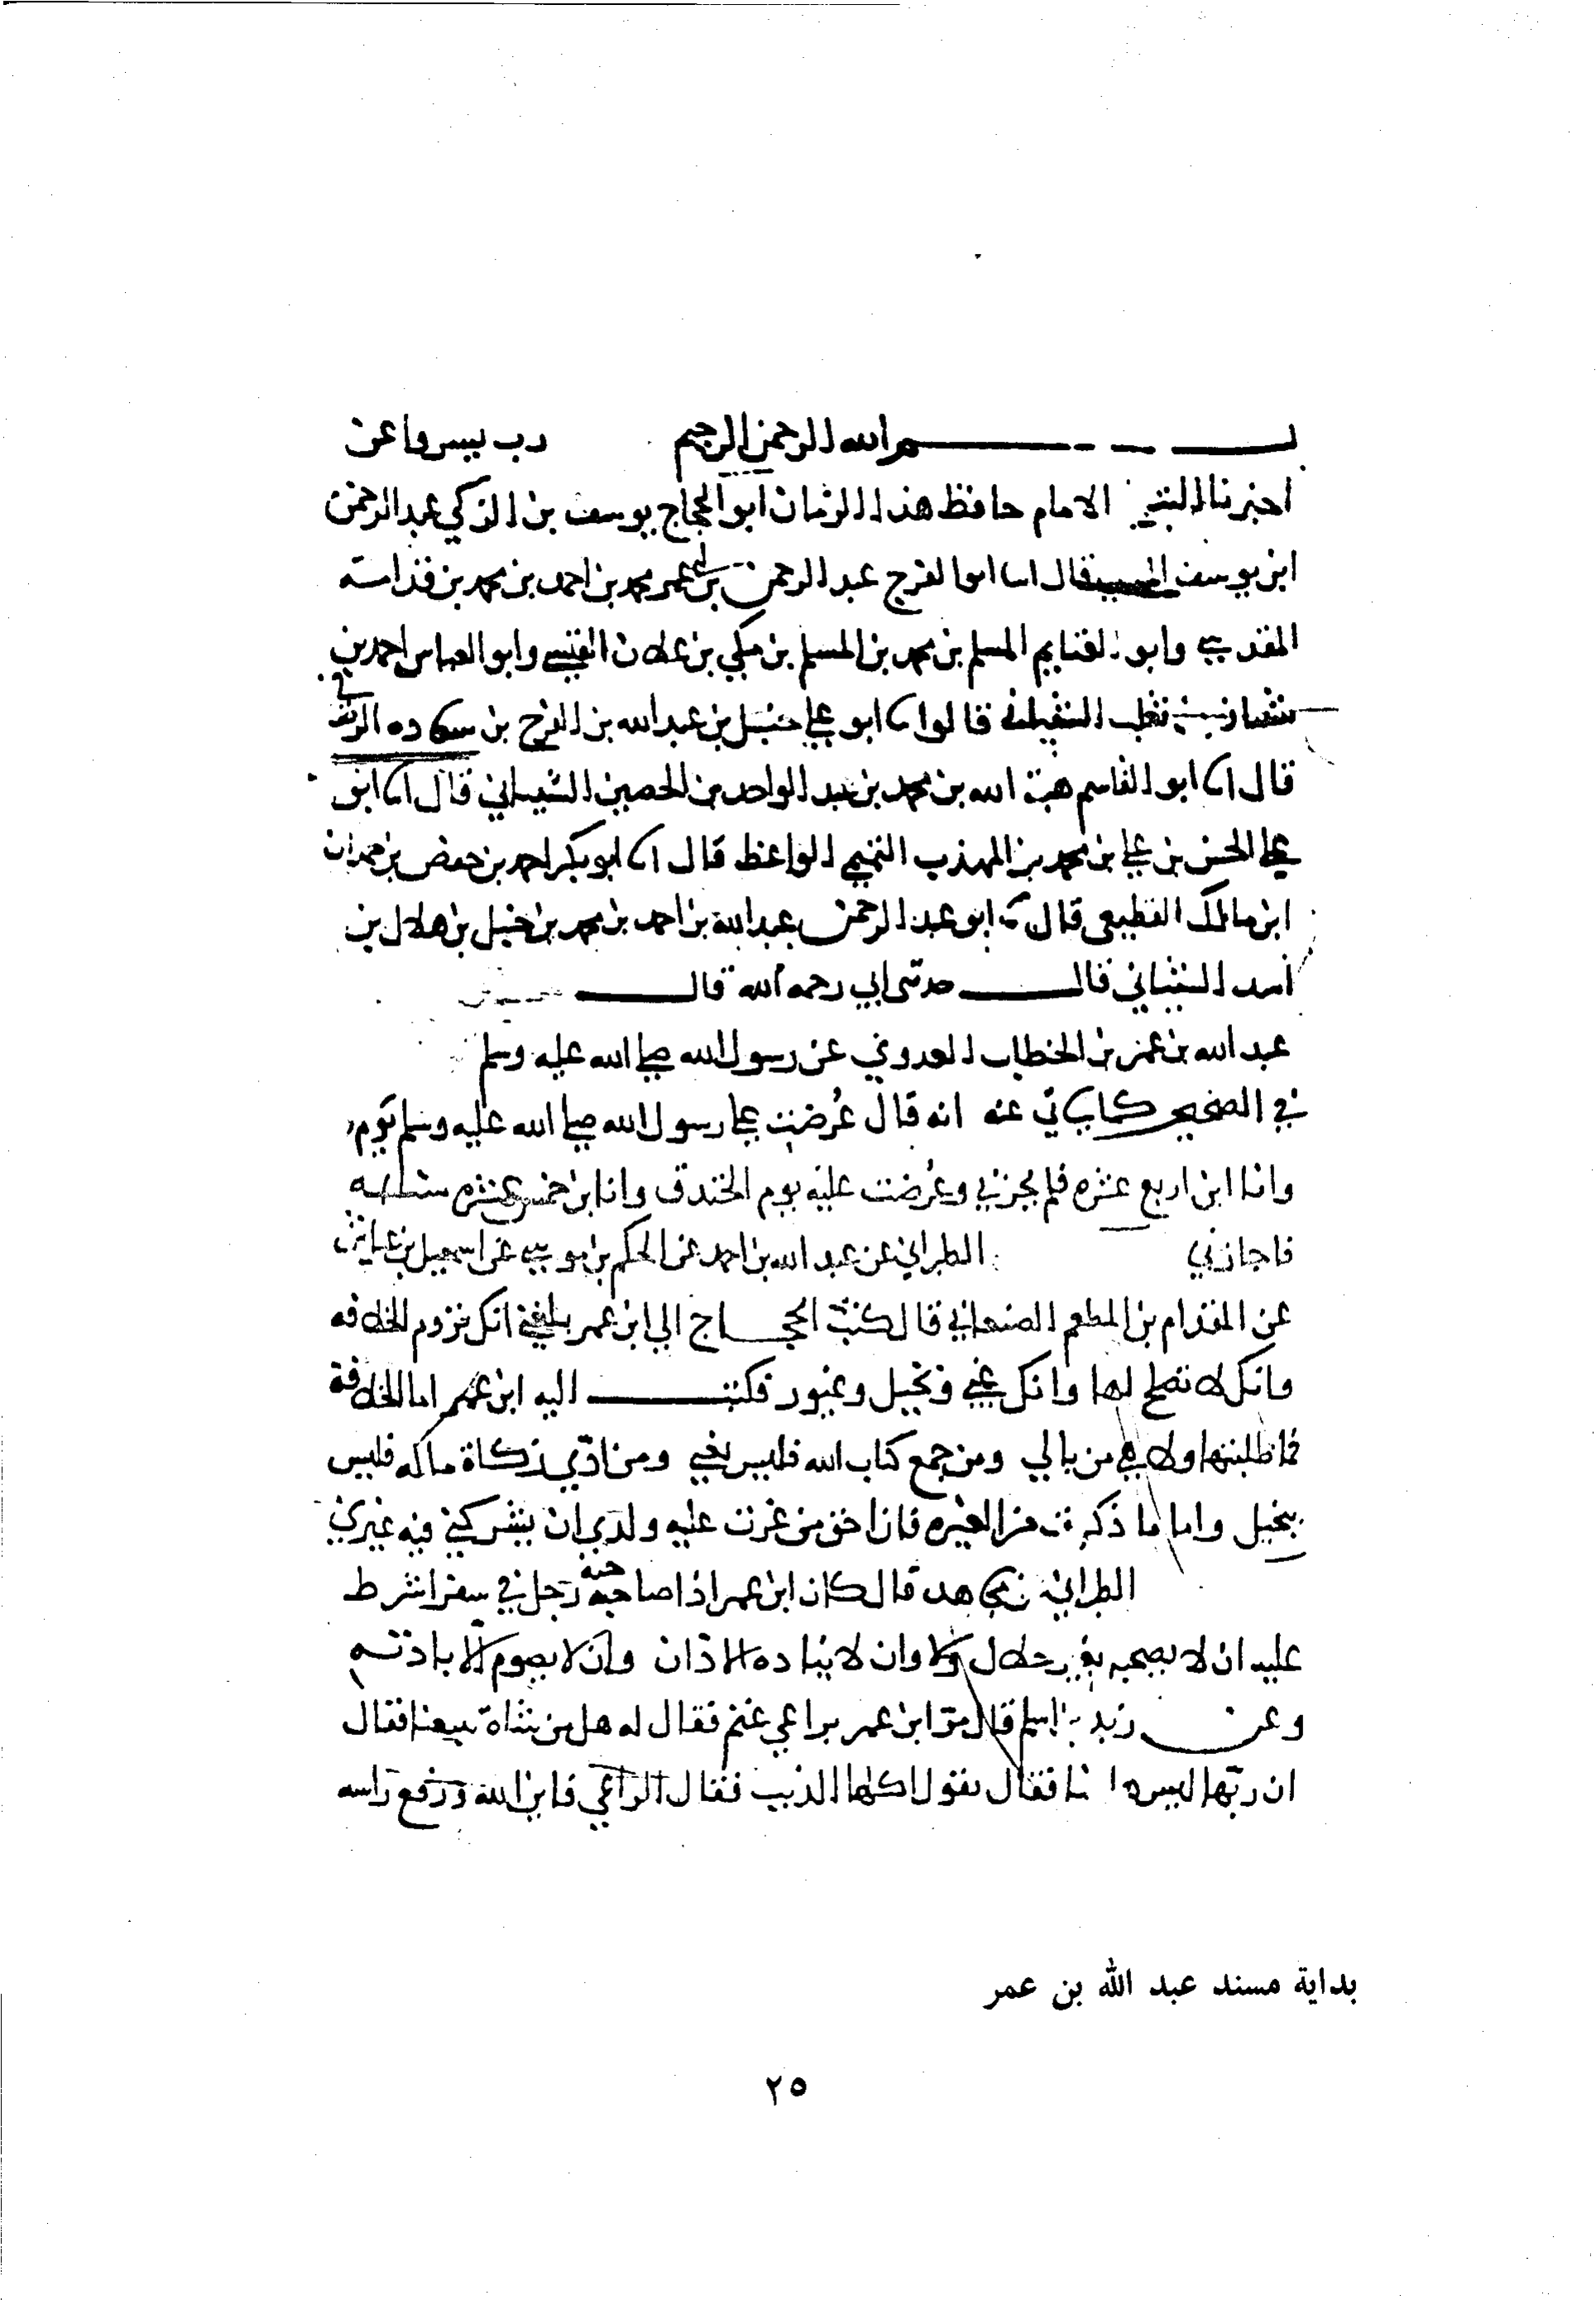 بسم الله الرحمن الرحيم رب يسر واعن
اخبرنا الشيخ الامام حافظ هذا الزمان ابو الحجاج يوسف بن الزكي عبد الرحمن
ابن يوسف قال اسا ابو الفرج عبد الرحمن بن ابي عمر محمد بن احمد بن محمد بن قدامه
المقدسي وابو الغنايم المسلم بن محمد بن المسلم بن مكي بن علان القيسي وابو العباس احمد بن
شيبان بن تغلب الشيباني قالوا انا ابو علي حنبل بن عبد الله بن الفرج بن سعاده
قال انا ابو القاسم هبة الله بن محمد بن عبد الواحد بن الحصين الشيباني قال انا ابو
علي الحسن بن علي بن محمد بن المهذب التميمي الواعظ قال انا ابو بكر احمد بن جعفر بن حمدان
ابن مالك القطيعي قال ثنا ابو عبد الرحمن عبد الله بن احمد بن محمد بن حنبل بن هلال بن
اسد الشيباني قال حدثني ابي رحمه الله قال
عبد الله بن عمر بن الخطاب العدوي عن رسول الله صلى الله عليه وسلم
في الصحيح عنه انه قال عُرضت علي رسول الله صلى الله عليه وسلم يوم
وانا ابن اربع عشره فلم يجزني وعُرضت عليه يوم الخندق وانا ابن خمس عشره سنه
فاجازني الطبراني عن عبد الله بن احمد عن الحكم بن موسى عن اسمعيل بن عياش
عن المقدام بن المطعم الصنعاني قال كتب الحجاج الي ابن عمر بلغني انك تروم الخلافه
وانك لا تصلح لها وانك غبي وبخيل وغيور فكتب اليه ابن عمر اما الخلافة
فما طلبتها ولا هي من بالي ومن جمع كتاب الله فليس بغبي ومن ادّي زكاة ماله فليس
ببخيل واما ما ذكرت من الغيره فان احق من غرت عليه ولدي ان يشركني فيه غيري
الطبراني عن مجاهد قال كان ابن عمر اذا صاحبه رجل في سفر اشترط
عليه ان لا يصحبه بغير حلال وان لا ينازعه الاذان وان لا يصوم الا باذنه
وعن زيد بن اسلم قال مرّ ابن عمر براعي غنم فقال له هل من شاة تبيعنا فقال
ان ربّها ليس ها هنا فقال تقول اكلها الذيب فقال الراعي فاين الله ورفع راسه
بداية مسند عبد الله بن عمر
٢٥